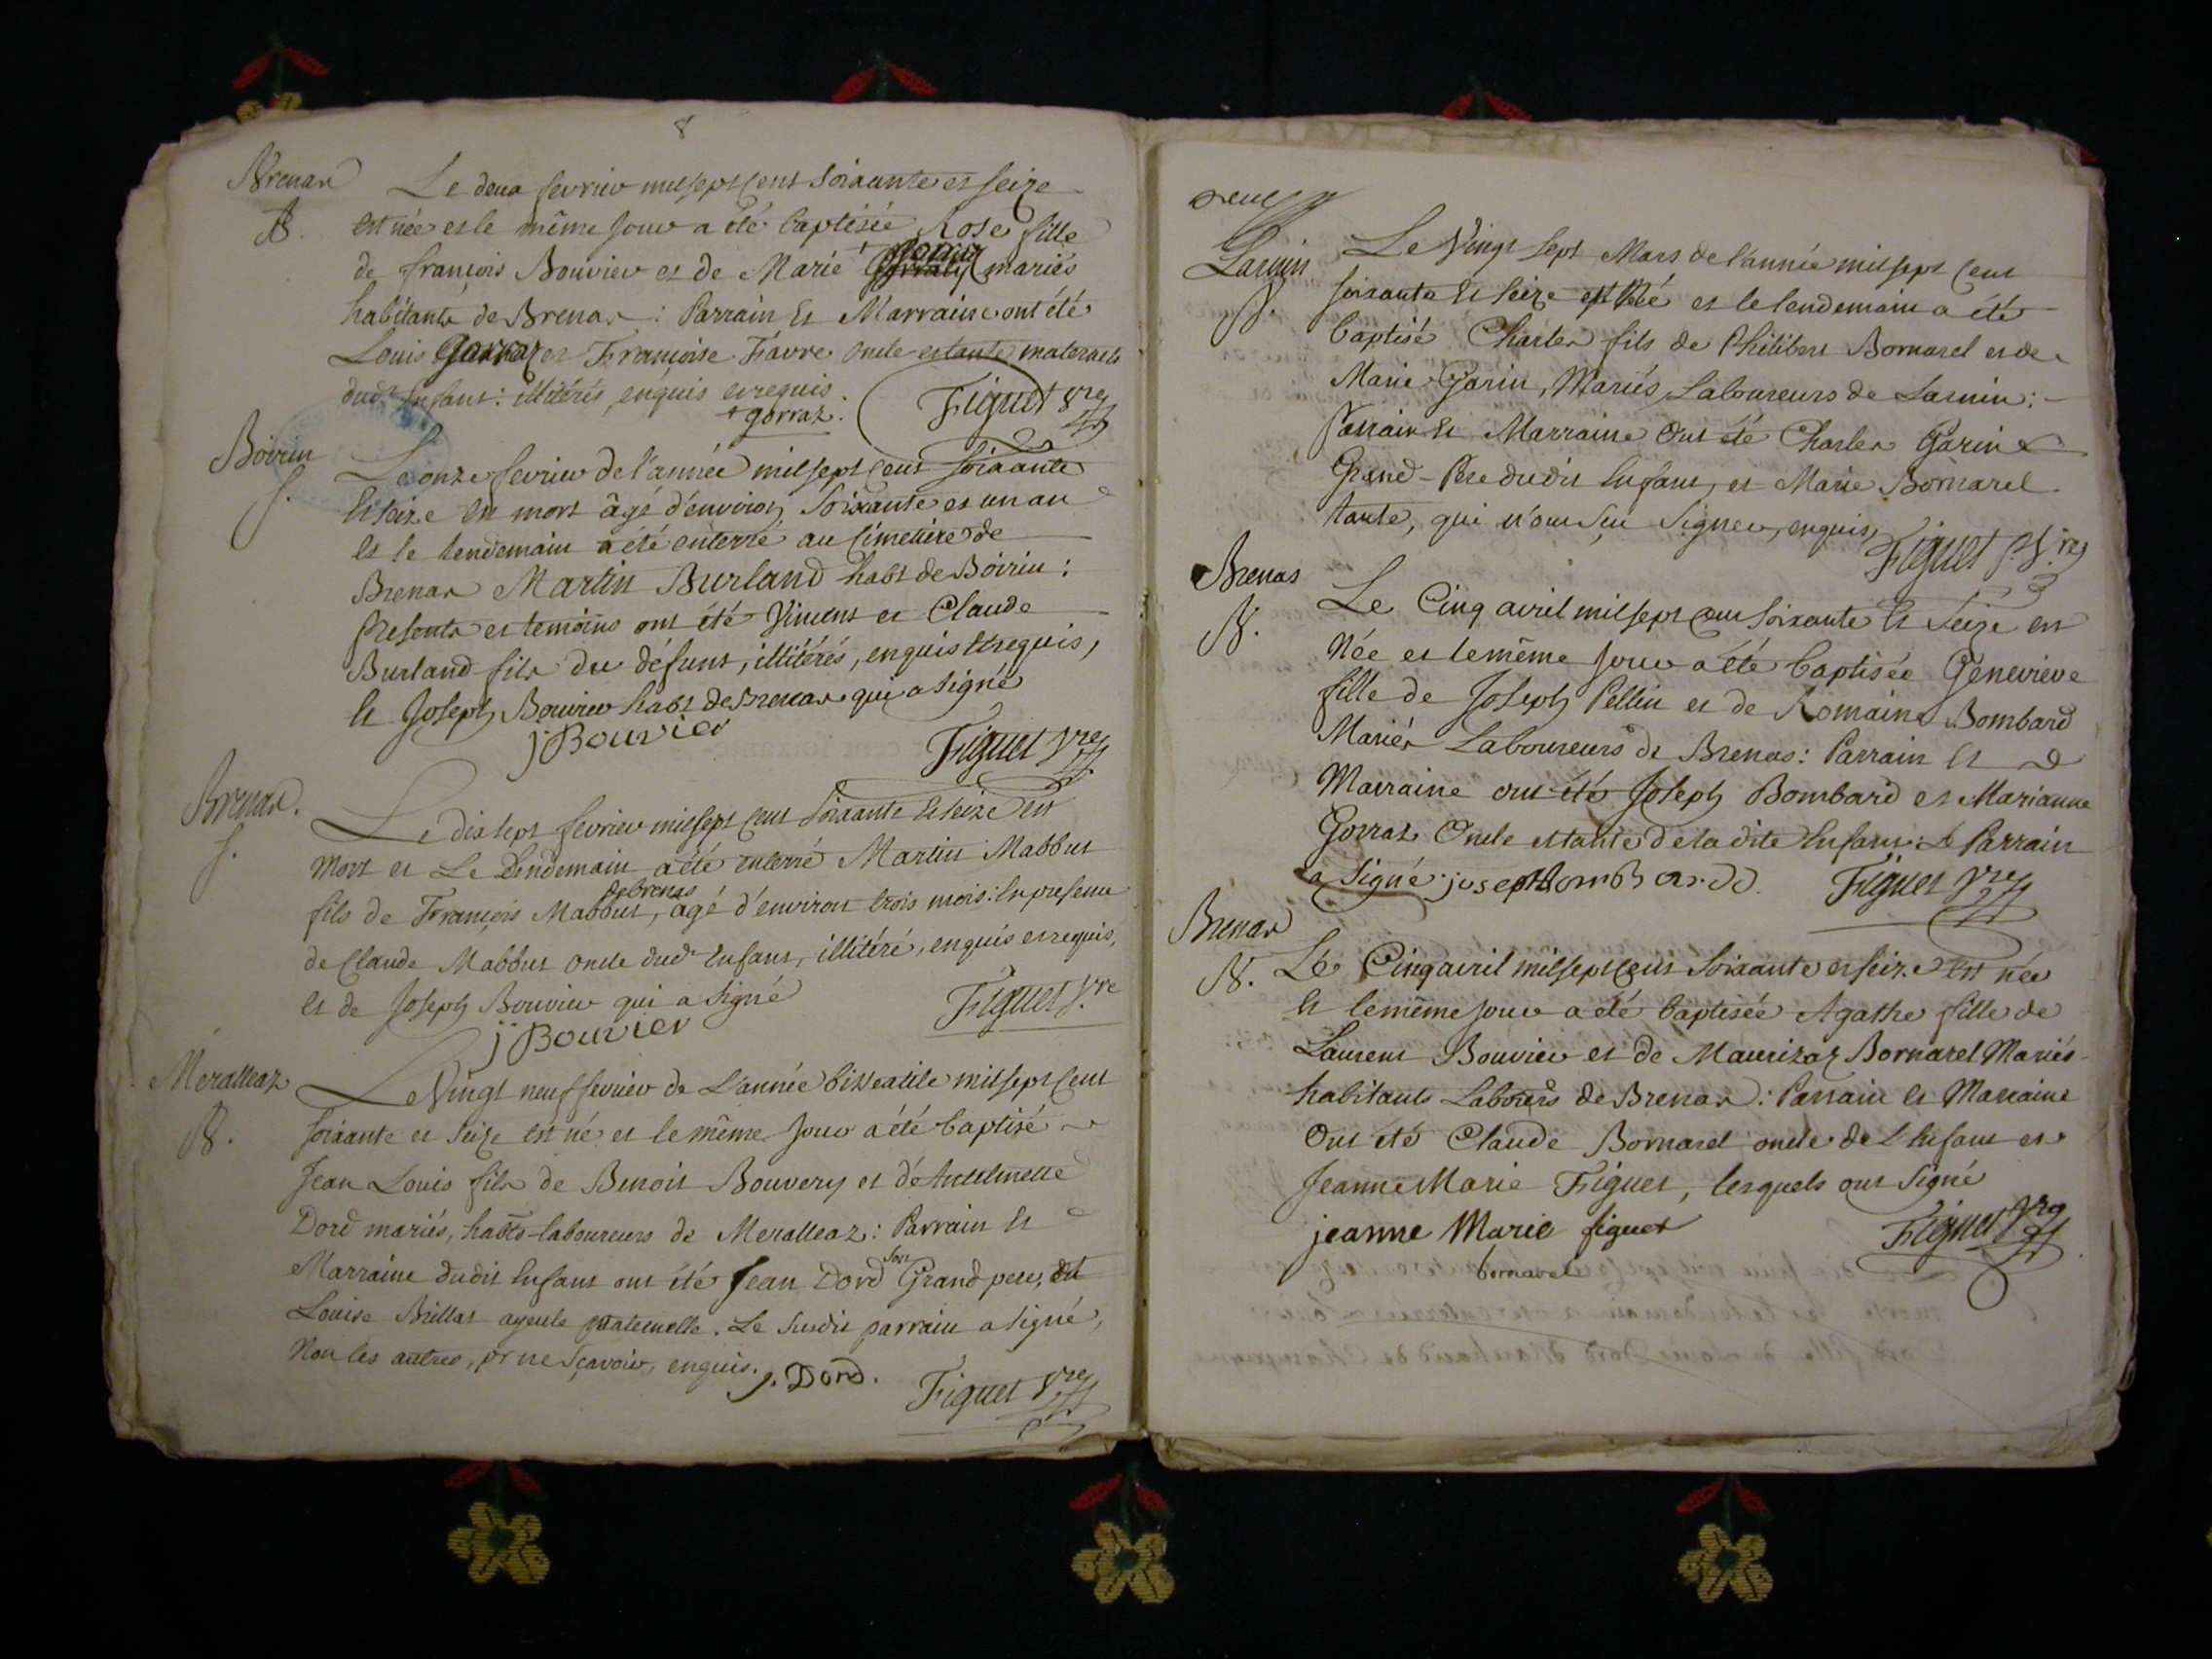 8
Brenaz
B.
Le deux fevrier mil sept cent soixante et seize
est née et le même jour a été baptisée Rose fille
de françois Bouvier et de Marie + mariés
habitants de Brenaz : Parrain et Marraine ont été
Louis Gorraz et Françoise Favre oncle et tante maternels
dud.t Enfant : illitérés, enquis et requis.
+ gorraz. Figuet p.re
Boirin
S.
Le onze fevrier de l'année mil sept cent soixante
et seize est mort âgé d'environ soixante et un an
et le lendemain a été enterré au Cimetiere de
Brenaz Martin Burland habt de Boirin :
Presents et temoins ont été Vincent et Claude
Burland fils du défunt, illitérés, enquis et requis,
et Joseph Bouvier habt de Brenaz qui a signé
j Bouvier Figuet p.re
Brenaz.
S.
Le dix sept fevrier mil sept cent soixante et seize est
mort et le lendemain a été enterré Martin Mabbut
fils de François Mabbut, de brenas âgé d'environ trois mois : en presence
de Claude Mabbut oncle dud.t Enfant, illitéré, enquis et requis,
et de Joseph Bouvier qui a signé
j Bouvier Figuet p.re
Meralleaz
B.
Le Vingt neuf fevrier de L'année bissextile mil sept cent
soixante et seize est né et le même jour a été baptisé
Jean Louis fils de Benoit Bouvery et d'Antelmette
Dord mariés, habts laboureurs de Meralleaz : Parrain et
Marraine dudit Enfant ont été Jean Dord son Grand pere, et
Louise Brillat ayeule paternelle. Le susdit parrain a signé,
Non les autres, pr ne sçavoir, enquis.
j. Dord. Figuet p.re
neuf
Larnin
B.
Le Vingt sept Mars de l'année mil sept cent
soixante et seize est Né et le lendemain a été
baptisé Charles fils de Philibert Bornarel et de
Marie Garin, Mariés Laboureurs de Larnin :
Parrain et Marraine ont été Charles Garin
Grand-Pere dudit Enfant, et Marie Bornarel
tante, qui n'ont sçu signer, enquis,
Figuet p.re
Brenas
B.
Le Cinq avril mil sept cent soixante et Seize est
Née et le même jour a été baptisée Genevieve
fille de Joseph Pellin et de Romaine Bombard
Mariés Laboureurs de Brenas : Parrain et
Marraine ont été Joseph Bombard et Marianne
Gorraz Oncle et tante de la dite Enfant : Le Parrain
a signé. joseph bombardd. Figuet p.re
Brenaz
B.
Le Cinq avril mil sept cent soixante et seize est née
et le même jour a été baptisée Agathe fille de
Laurent Bouvier et de Maurizaz Bornarel Mariés
habitants Labours de Brenaz : Parrain et Marraine
Ont été Claude Bornarel oncle de l'Enfant et
Jeanne Marie Figuet, lesquels ont signé
jeanne Marie figuet Figuet p.re
bornarel